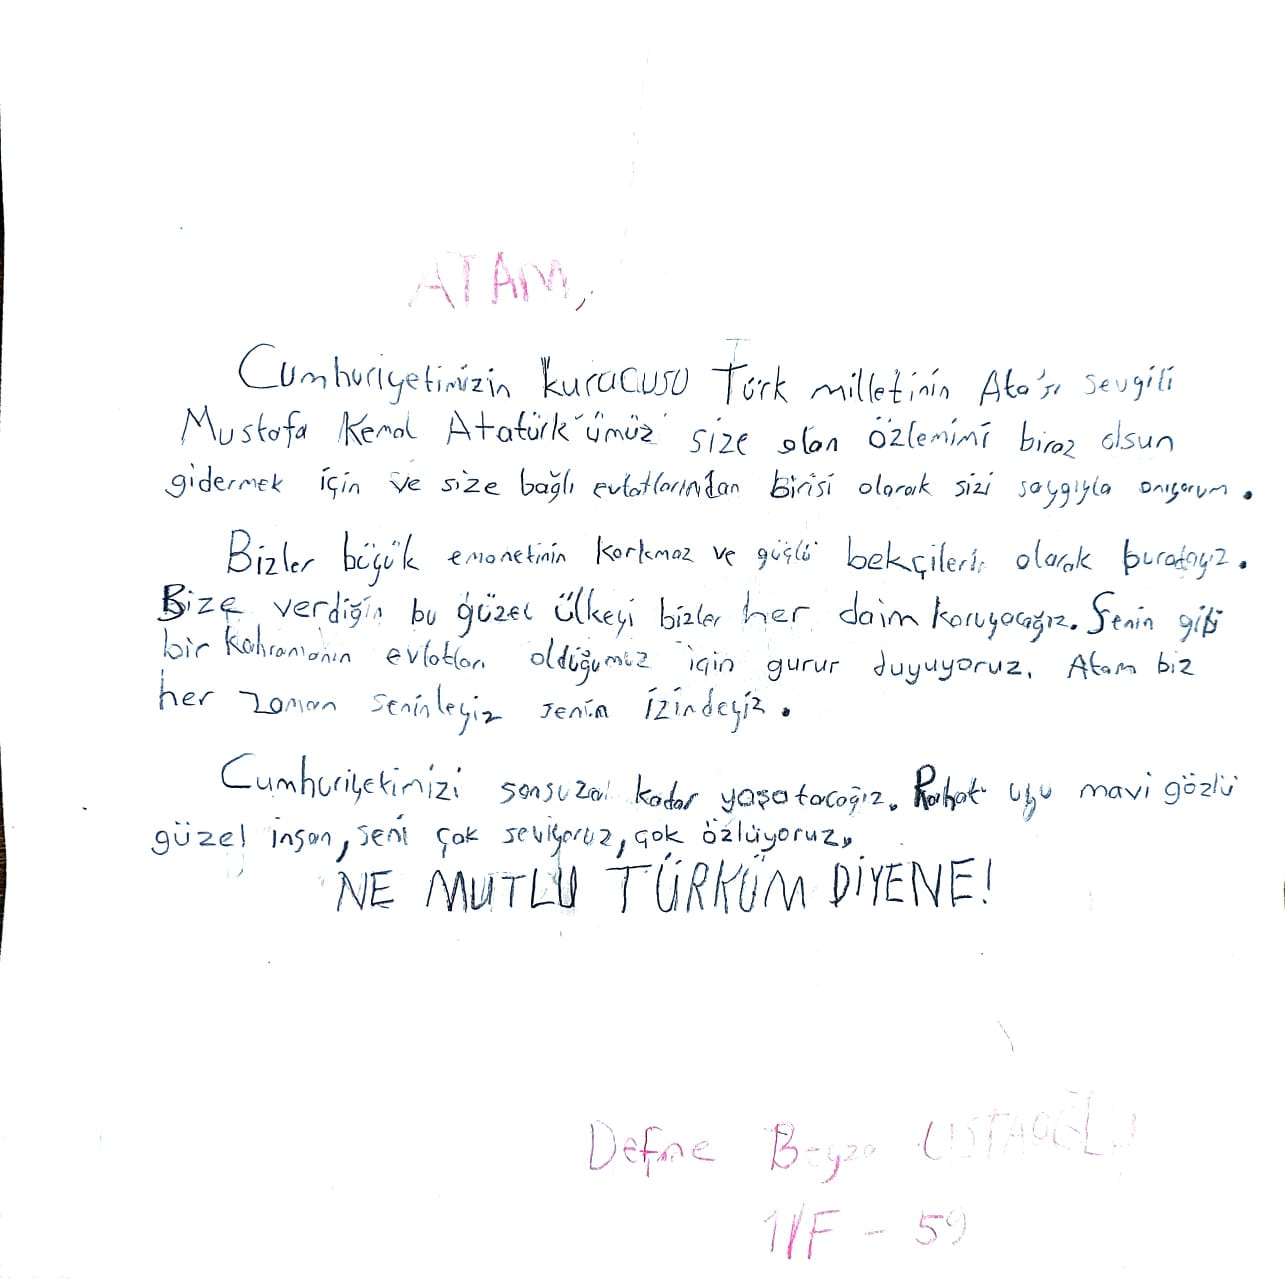 ATAM,
Cumhuriyetimizin kuracusu Türk milletinin Ata'sı sevgili
Mustafa Kemal Atatürk'ümüz size olan özlemimi biraz olsun
gidermek için ve size bağlı evlatlarından birisi olarak sizi saygıyla anıyorum.
Bizler büyük emanetinin korkmaz ve güçlü bekçilerin olarak buradayız.
Bize verdiğin bu güzel ülkeyi bizler her daim koruyacağız. Senin gibi
bir kahramanın evlatları olduğumuz için gurur duyuyoruz. Atam biz
her zaman seninleyiz senin izindeyiz.
Cumhuriyetimizi sonsuza kadar yaşatacağız. Rahat uyu mavi gözlü
güzel insan, seni çok seviyoruz, çok özlüyoruz,
NE MUTLU TÜRKÜM DİYENE!
Defne Beyza USTAOĞLU
1/F - 59